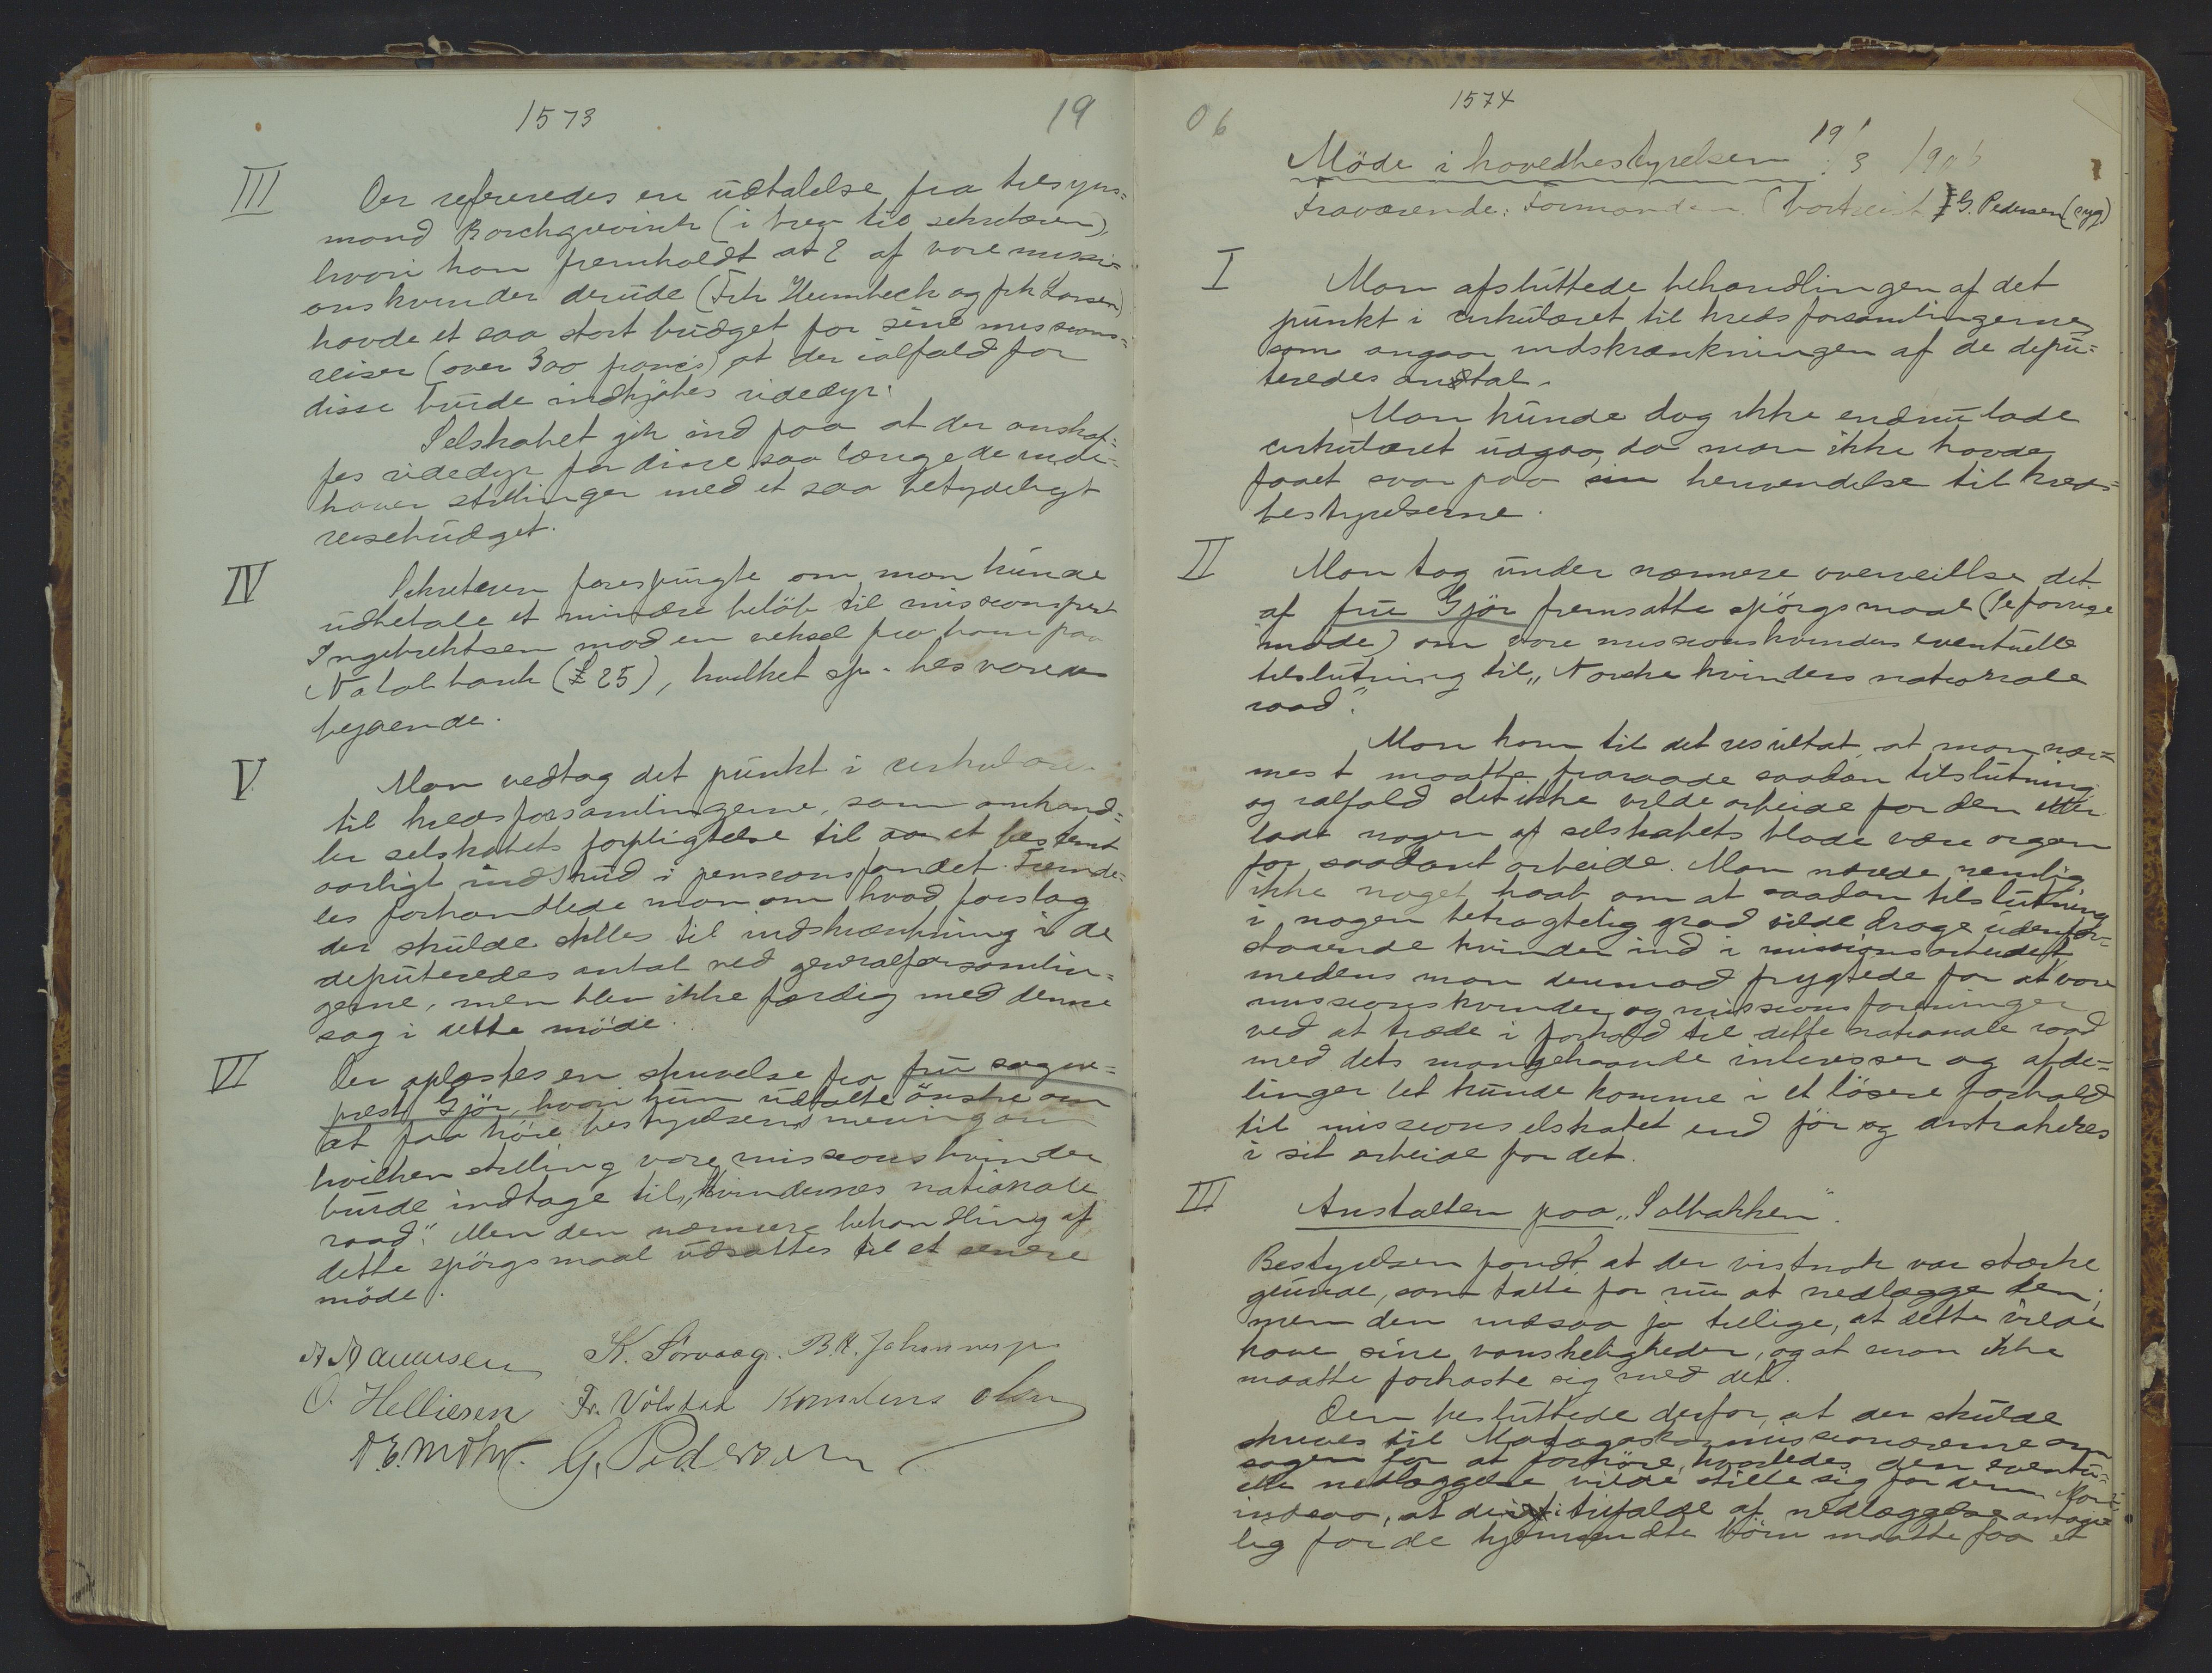 1573
19
III
Der refereredes en udtalelse fra tilsyns=
mand Borchgrevink (i brev til sekretæren),
hvori han fremholdt at 2 af vore missi=
onskvinder derude (Frk Heimbeck og frk Larsen)
havde et saa stort budget for sine missions=
reiser (over 300 francs) at der ialfald for
disse burde indkjöbes ridedyr.
Selskabet gik ind paa at der anskaf=
fes ridedyr for disse saa længe de inde=
haver stillinger med et saa betydeligt
reisebudget.
IV
Sekretæren forespurgte om man kunde
udbetale et mindre belöb til missionsprest
Ingebrektsen mod en veksel fra ham paa
Natal bank (£ 25), hvilket sp. besvaredes
bejaende.
V
Man vedtog det punkt i cirkulære
til kredsforsamlingerne, som omhand=
ler selskabets forpligtelse til et bestemt
aarligt indskud i pensionsfondet. Fremde=
les forhandlede man om hvad forslag
der skulde stilles til indskrænkning i de
deputeredes antal ved generalforsamlin=
gerne, men blev ikke færdig med denne
sag i dette möde.
VI
Der oplæstes en skrivelse fra fru sogne=
prest Gjör, hvori hun udtalte önske om
at faa höre bestyrelsens mening om
hvilken stilling vore missionskvinder
burde indtage til „Kvindernes nationale
raad". Men den nærmere behandling af
dette spörgsmaal udsattes til et senere
möde.
K. Sörvaag. B.K. Johannesen
O. Helliesen Fr. Völstad Kornelius Olsen
G. Pedersen
06
1574
Möde i hovedbestyrelsen 19/3 1906
Fraværende: Formanden (bortreist) G. Pedersen (syg)
I
Man afsluttede behandlingen af det
punkt i cirkulæret til kredsforsamlingerne,
som angaar indskrænkningen af de depu=
teredes antal.
Man kunde dog ikke endnu lade
cirkulæret udgaa, da man ikke havde
faaet svar paa sin henvendelse til kreds=
bestyrelserne.
II
Man tog under nærmere overveielse det
af fru Gjör fremsatte spörgsmaal (Se forrige
möde) om vore missionskvinders eventuelle
tilslutning til „Norske kvinders nationale
raad".
Man kom til det resultat, at man nær=
mest maatte fraraade saadan tilslutning
og ialfald det ikke vilde arbeide for den eller
lade nogen af selskabets blade være organ
for saadant arbeide. Man nærede nemlig
ikke noget haab om at saadan tilslutning
i nogen betragtelig grad vilde drage udenfor=
staaende kvinder ind i missionsarbeidet,
medens man derimod frygtede for at vore
missionskvinder og missionsforeninger
ved at træde i forhold til dette nationale raad
med dets mangehaande interesser og afde=
linger let kunde komme i et lösere forhold
til missionsselskabet end för og distraheres
i sit arbeide for det.
III
Anstalten paa „Solbakken".
Bestyrelsen fandt at der vistnok var stærke
grunde, som talte for nu at nedlægge den;
men den indsaa jo tillige, at dette vilde
have sine vanskeligheder, og at man ikke
maatte forhaste sig med det.
Den besluttede derfor, at der skulde
skrives til Madagaskarmissionærerne om
sagen for at forhöre, hvorledes den eventu=
elle nedlæggelse vilde stille sig for dem. Man
indsaa, at der i tilfælde af nedlæggelse antage
lig for de hjemsendte börn maatte faa et